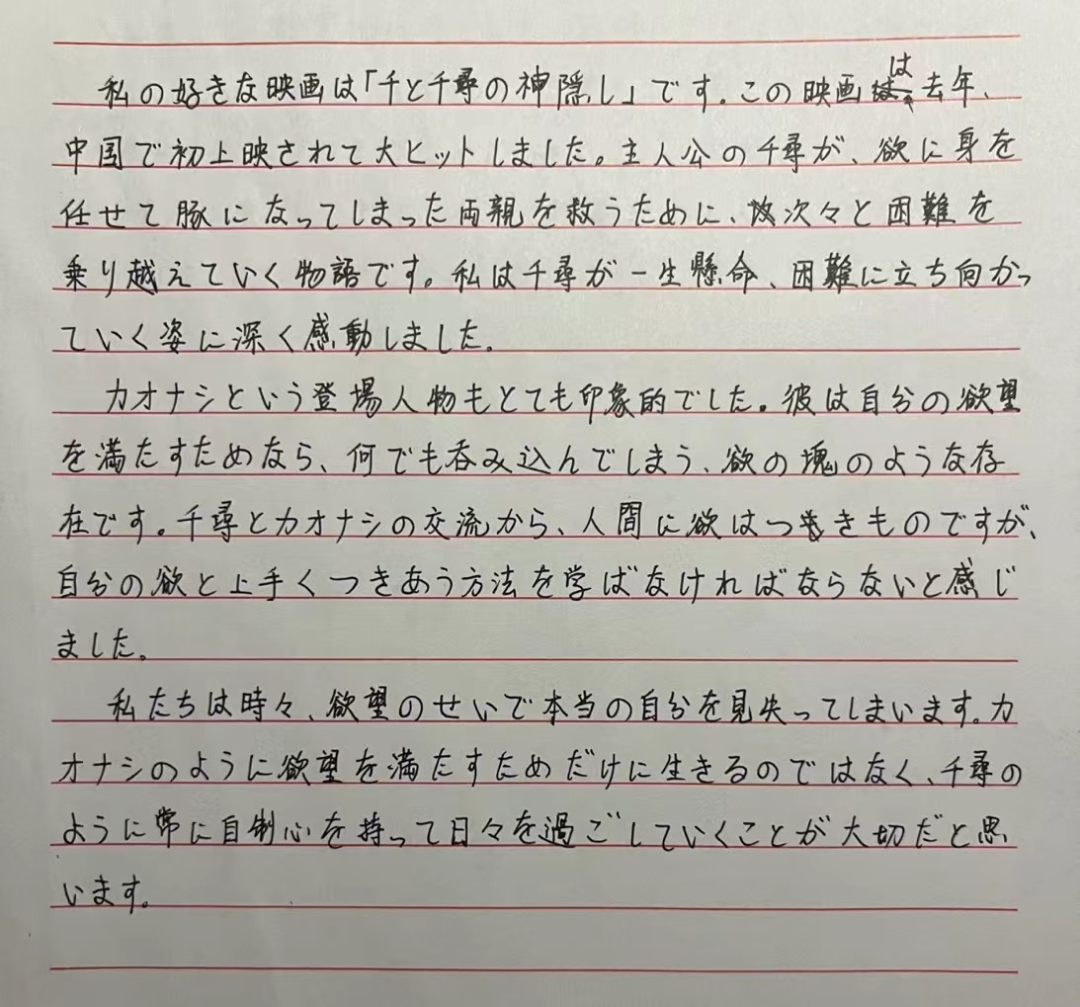 私の好きな映画は「千と千尋の神隠し」です。この映画は去年、
中国で初上映されて大ヒットしました。主人公の千尋が、欲に身を
任せて豚になってしまった両親を救うために、次々と困難を
乗り越えていく物語です。私は千尋が一生懸命、困難に立ち向かっ
ていく姿に深く感動しました。
カオナシという登場人物もとても印象的でした。彼は自分の欲望
を満たすためなら、何でも呑み込んでしまう、欲の塊のような存
在です。千尋とカオナシの交流から、人間に欲はつきものですが、
自分の欲と上手くつきあう方法を学ばなければならないと感じ
ました。
私たちは時々、欲望のせいで本当の自分を見失ってしまいます。カ
オナシのように欲望を満たすためだけに生きるのではなく、千尋の
ように常に自制心を持って日々を過ごしていくことが大切だと思
います。